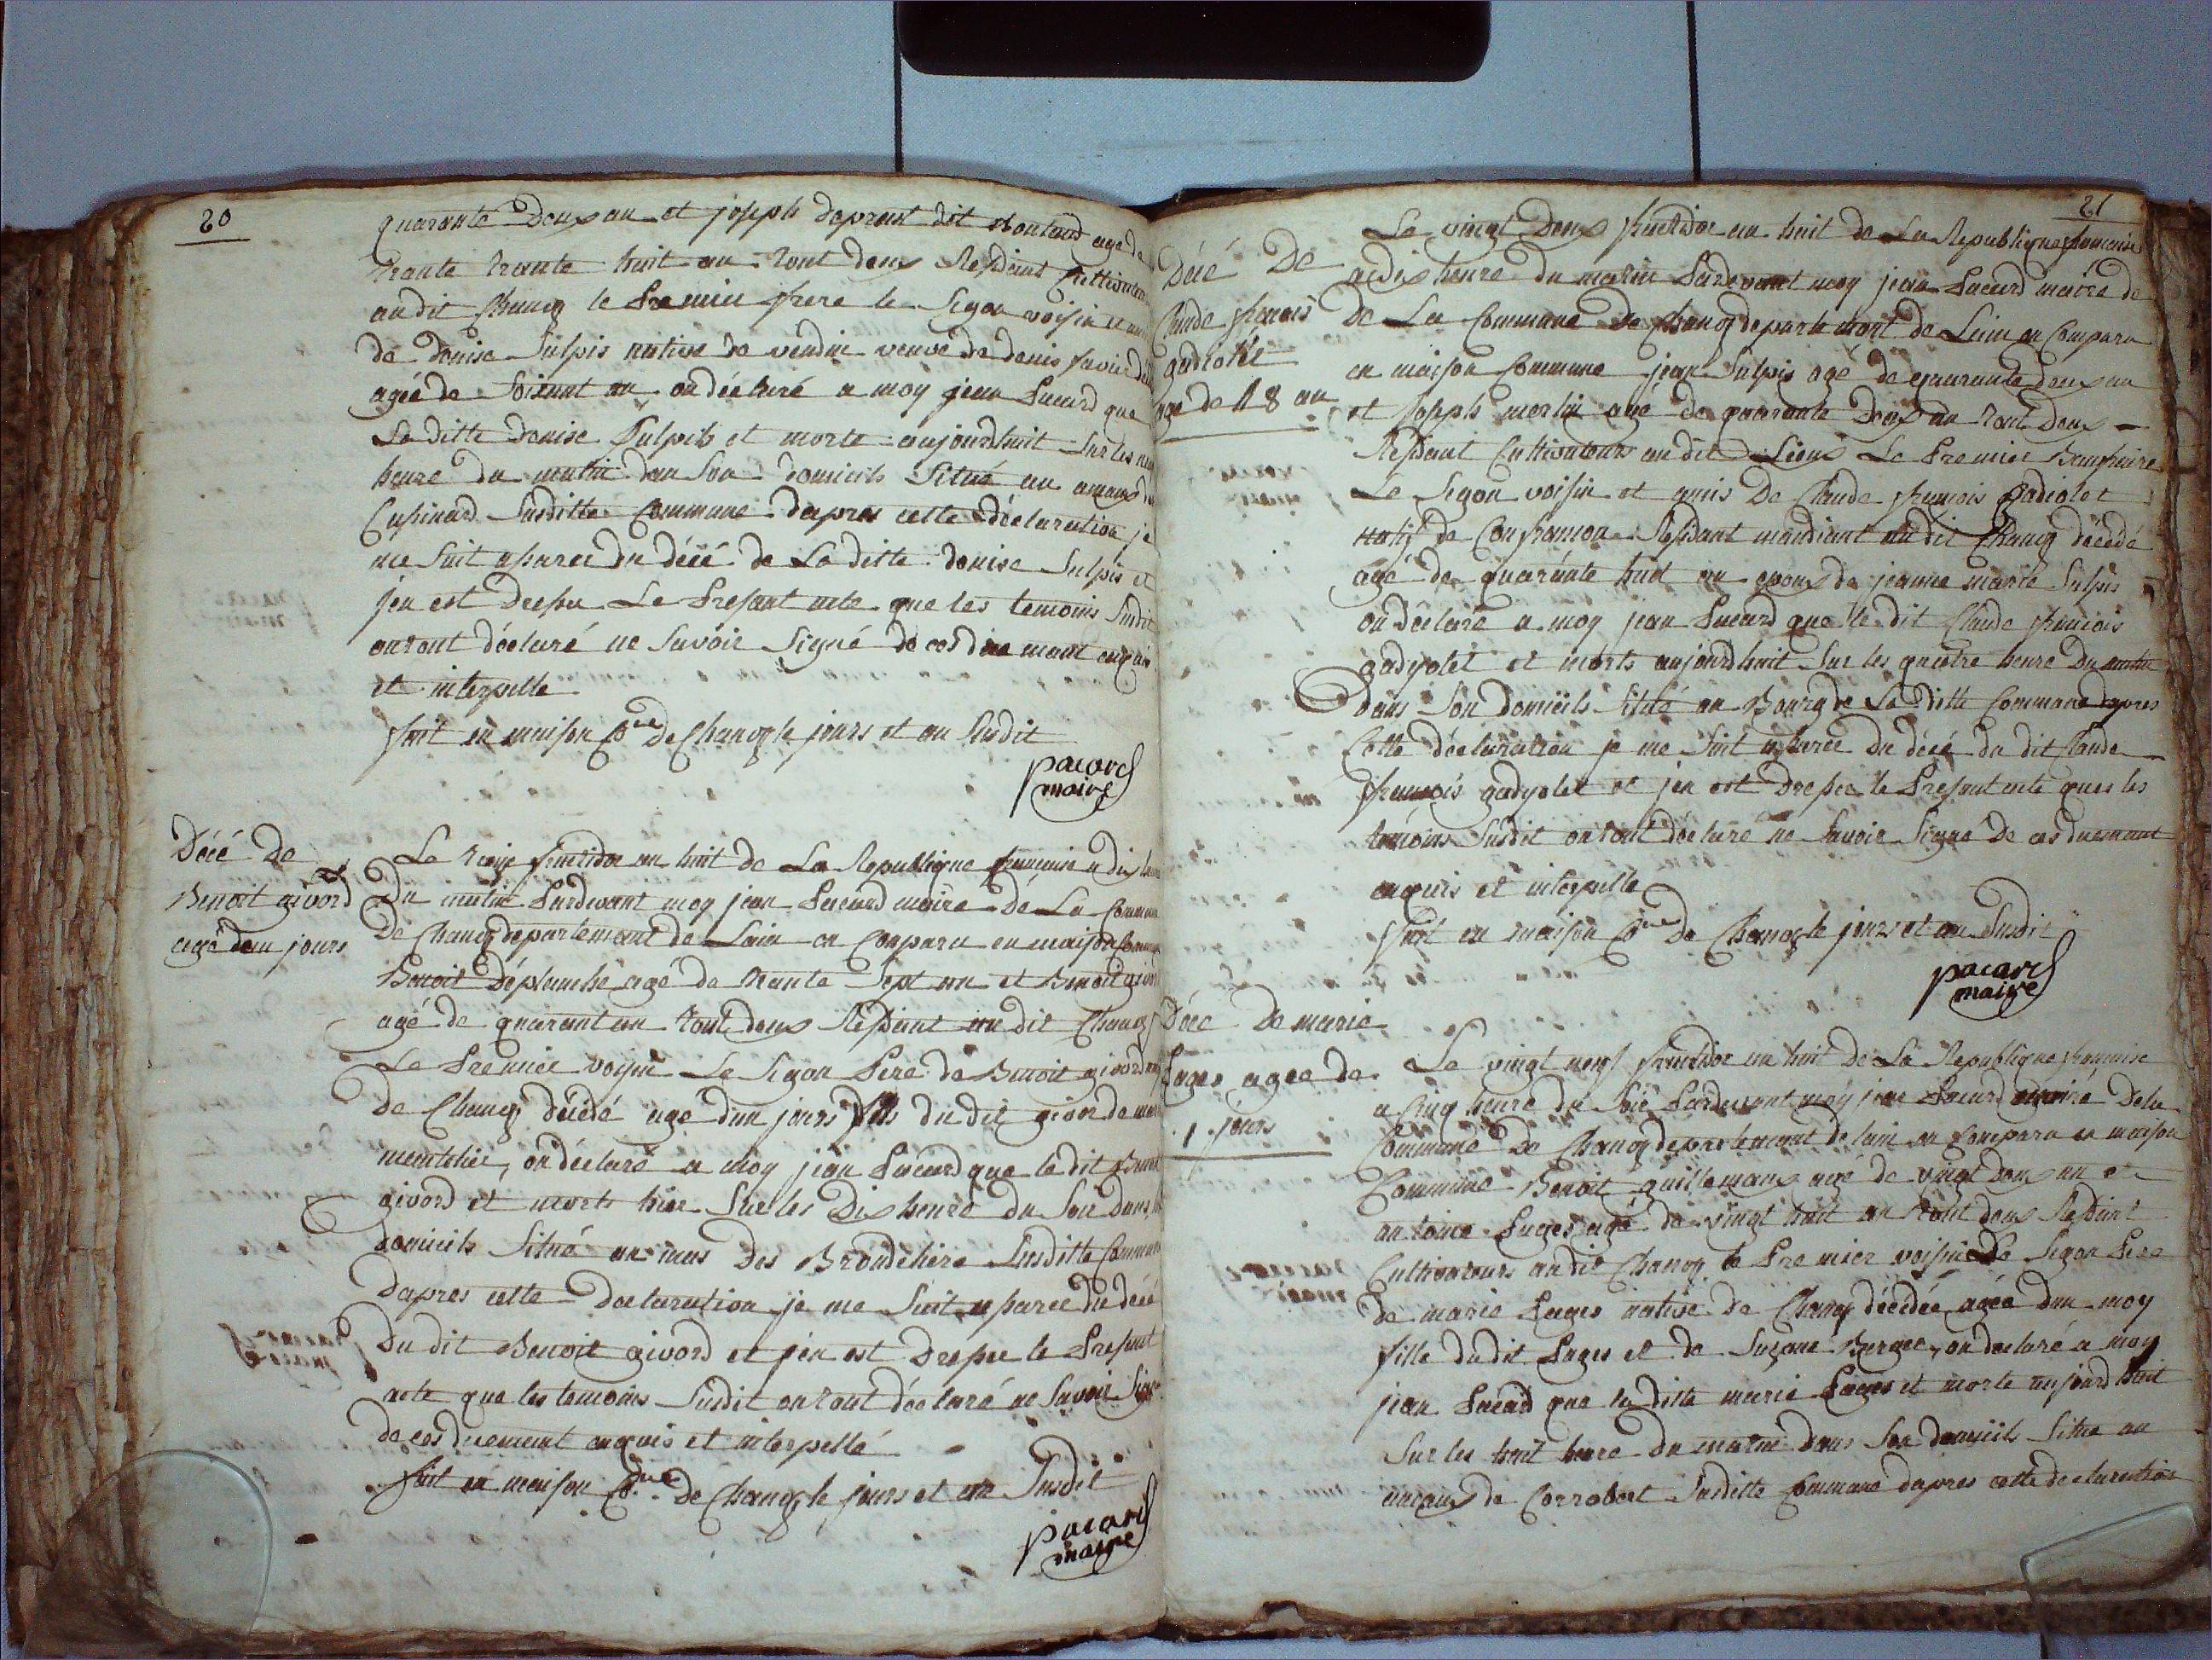 20
quarante Deux an et joseph depreat dit
trante trante huit an tout deux Résidant Cultivateur
au dit Chanoz le Premier frere le Segon voisin et
de denise Sulpis native de vendin veuve de denis
agée de Soisant an on déclaré a moy jean Pacard que
La ditte denise Sulpis et morte aujourdhuit Sur les
heure du matin dan Son domicils Situé au amaux de
Cupinard Susditte Commune dapres cette déclaration je
me Suit asparee du décé de La ditte denise Sulpis et
jen est Drepée Le Present acte que les temoins Sudit
on tout déclaré ne Savoir Signé de ces duemant enquis
et interpelle
fait en maison Cᵒᵐᵘⁿᵉ De Chanoz le jours et an Susdit
pacard
maire
Décé De
Benoit givord
agé dun jours
Le treize fructidor an huit de La Republique francaise a dix heure
Du matin Pardevant moy jean Pacard maire de La Commune
De Chanoz departemant de Lain on Conparu en maison Commune
Benoit Déplanche agé de trante Sept an et Benoit givord
agé de quarant an tout deux Résidant au dit Chanoz
Le Premier voisin Le Segon Pere de Benoit givord
de Chanoz décédé agé dun jours fils du dit givor de
on déclaré a moy jean Pacard que le dit Benoit
givord et morts hier Sur les Dix heure du Soir Dans
domicils Situé au mas Des Brondelière Susditte Commune
Dapres cette Declaration je me Suit asparee du décé
Du dit Benoit givord et jen est Drepee le Present
acte que les temoins Susdit on tout déclaré ne Savoir Signe
de ces duement enquis et interpellé
fait en maison Cᵒᵐᵘⁿᵉ De Chanoz le jours et an Susdit
pacard
maire
21
Décé De
Claude francois
gadiolet
agé de 48 an
Le vingt Deux fructidor an huit de La Republique francaise
a dix heure du matin Pardevant moy jean Pacard maire de
De La Commune De Chanoz departemant de Lain on Comparu
en maison Commune jean Sulpis agé de quarante deux an
et joseph merlin agé de quarante deux an tout deux
Résidant Cultivateurs au dit Lieux Le Premier Beaufraire
Le Segon voisin et amis De Claude francois gadiolet
natif de Confrancon Résidant mandiant au dit Chanoz décédé
agé de quarénte huit an epoux de jeanne marie Sulpis
on déclaré a moy jean Pacard que le dit Claude francois
gadyolet et morts aujourdhuit Sur les quatre heure Du matin
dans Son domicils Situé au Bourg de La ditte Commune dapres
Cette déclaration je me Suit asparee du décé du dit Claude
francois gadyolet et jen est drepee le Present acte que les
temoins Susdit on tout déclaré ne Savoir Signé De ces duemant
enquis et interpelle
fait en maison Cᵒᵐᵘⁿᵉ De Chanoz le jours et an Susdit
pacard
maire
Décé De marie
Pages agee de
1 jours
Le vingt neuf fructidor an huit de La Republique francaise
a Cinq heure du Soir Pardevant moy jean Pacard maire De La
Commune De Chanoz departemant de lain on Comparu en maison
Commune Benoit guillemaux agé de vingt deux an et
antoine Pages agé de vingt huit an tout deux Résidant
Cultivateurs au dit Chanoz le Premier voisin Le Segon Pere
De marie Pages native de Chanoz décédée agée dun moy
fille du dit Pages et de Suzane Berger, on declaré a moy
jean Pacard que la ditte marie Pages et morte aujourdhuit
Sur les huit heure du matin dans Son domicils Situe au
amaux de Corrobert Susditte Commune dapres cette declaration